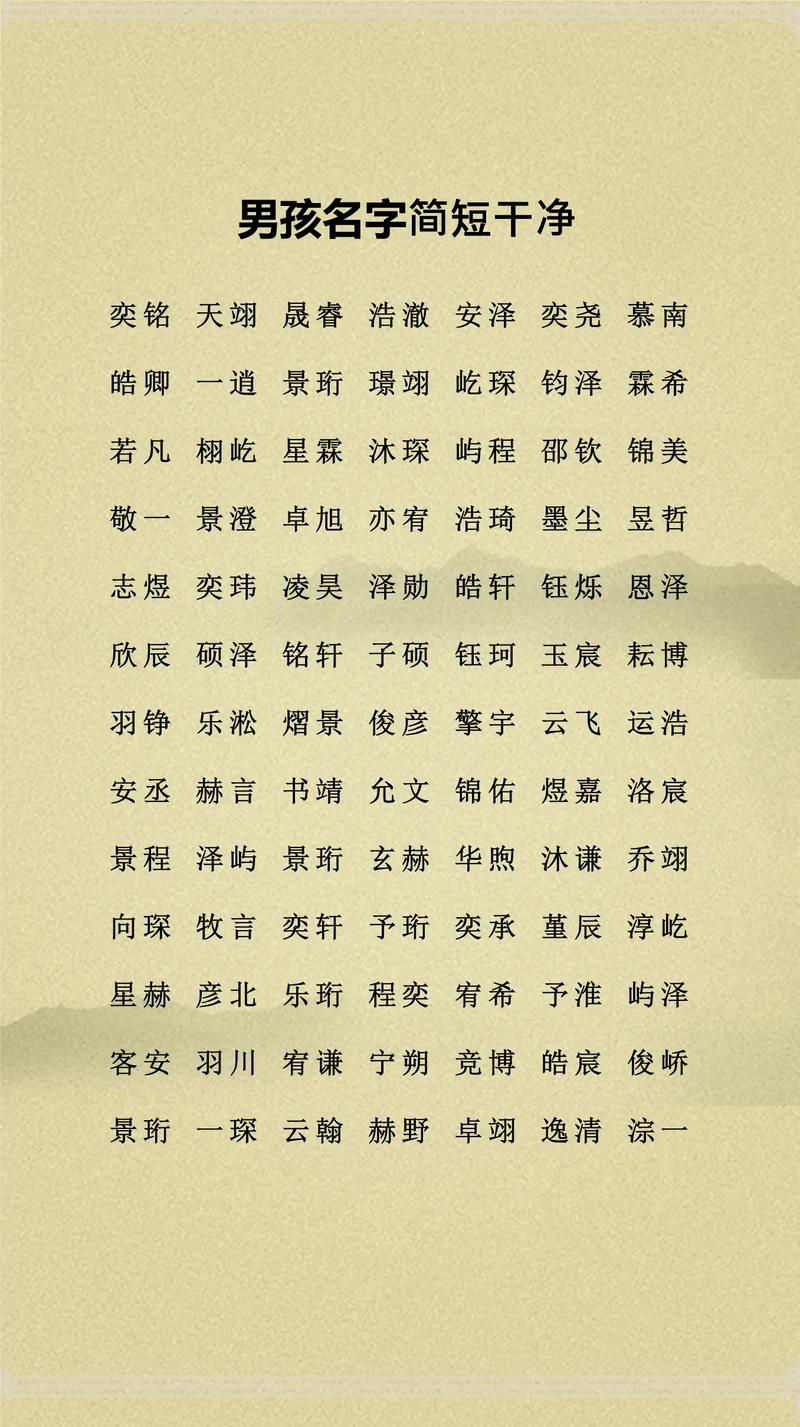 男孩名字简短干净
奕铭 天翊 晟睿 浩澈 安泽 奕尧 慕南
皓卿 一逍 景珩 璟翊 屹琛 钧泽 霖希
若凡 栩屹 星霖 沐琛 屿程 邵钦 锦美
敬一 景澄 卓旭 亦宥 浩琦 墨尘 昱哲
志煜 奕玮 凌昊 泽勋 皓轩 钰烁 恩泽
欣辰 硕泽 铭轩 子硕 钰珂 玉宸 耘博
羽铮 乐淞 熠景 俊彦 擎宇 云飞 运浩
安丞 赫言 书靖 允文 锦佑 煜嘉 洛宸
景程 泽屿 景珩 玄赫 华煦 沐谦 乔翊
向琛 牧言 奕轩 予珩 奕承 堇辰 淳屹
星赫 彦北 乐珩 程奕 宥希 予淮 屿泽
客安 羽川 宥谦 宁朔 竞博 皓宸 俊峤
景珩 一琛 云翰 赫野 卓翊 逸清 淙一